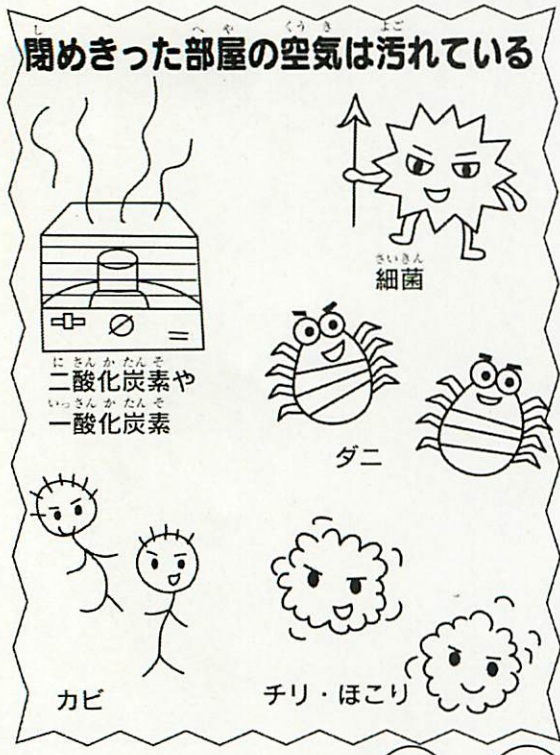 閉めきった部屋の空気は汚れている
細菌
二酸化炭素や
一酸化炭素
ダニ
カビ
チリ・ほこり